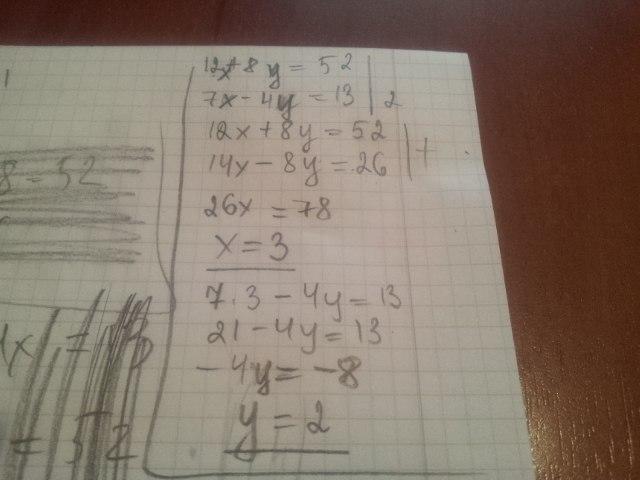 12x+8y=52
7x-4y=13|2
12x+8y=52
14x-8y=26|+
26x=78
x=3
7.3-4y=13
21-4y=13
-4y=-8
y=2
8-52
=52